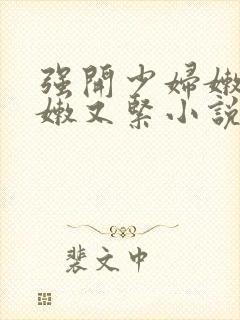 强開少婦嫩
嫩又緊小說
裴文中